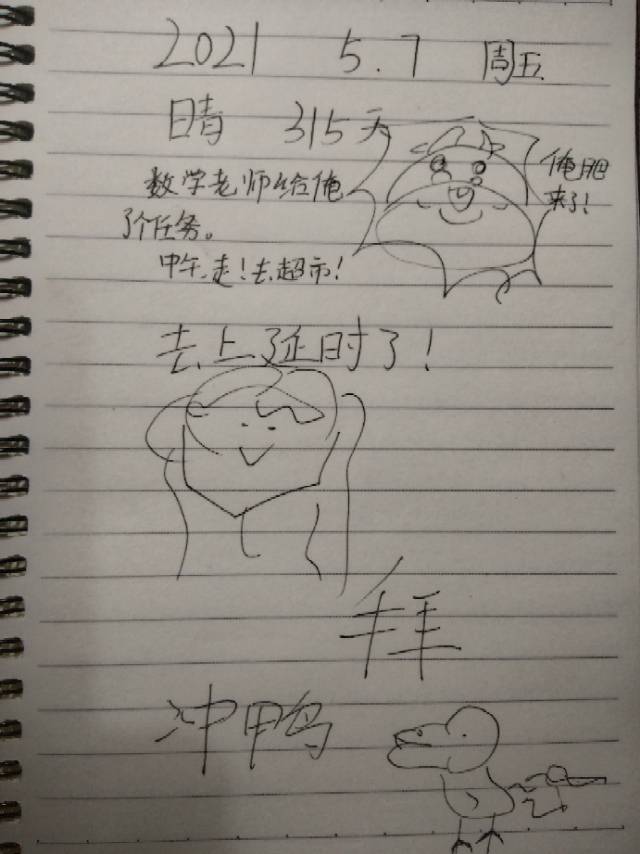 2021 5.7 周五
晴 315天
数学老师给俺
了个任务。
中午,走!去超市!
俺肥
来了!
去上延时了!
拜
冲鸭